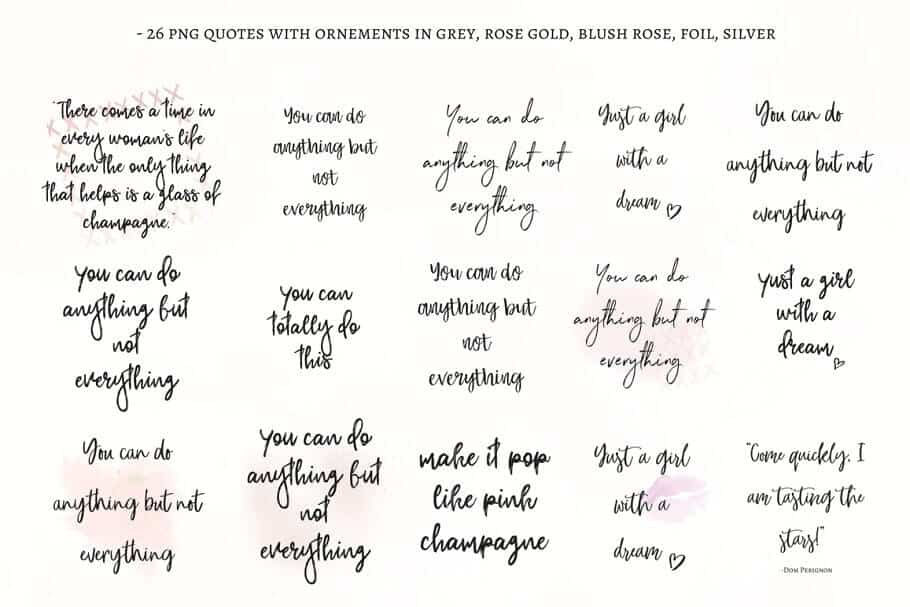 - 26 PNG QUOTES WITH ORNEMENTS IN GREY, ROSE GOLD, BLUSH ROSE, FOIL, SILVER
"There comes a time in
every woman's life
when the only thing
that helps is a glass of
champagne."
You can do
anything but
not
everything
You can do
anything but not
everything
Just a girl
with a
dream
You can do
anything but not
everything
you can do
anything but
not
everything
you can
totally do
this
You can do
anything but
not
everything
You can do
anything but not
everything
Just a girl
with a
dream
You can do
anything but not
everything
you can do
anything but
not
everything
make it pop
like pink
champagne
Just a girl
with a
dream
"Come quickly. I
am tasting the
stars!"
-Dom Perignon